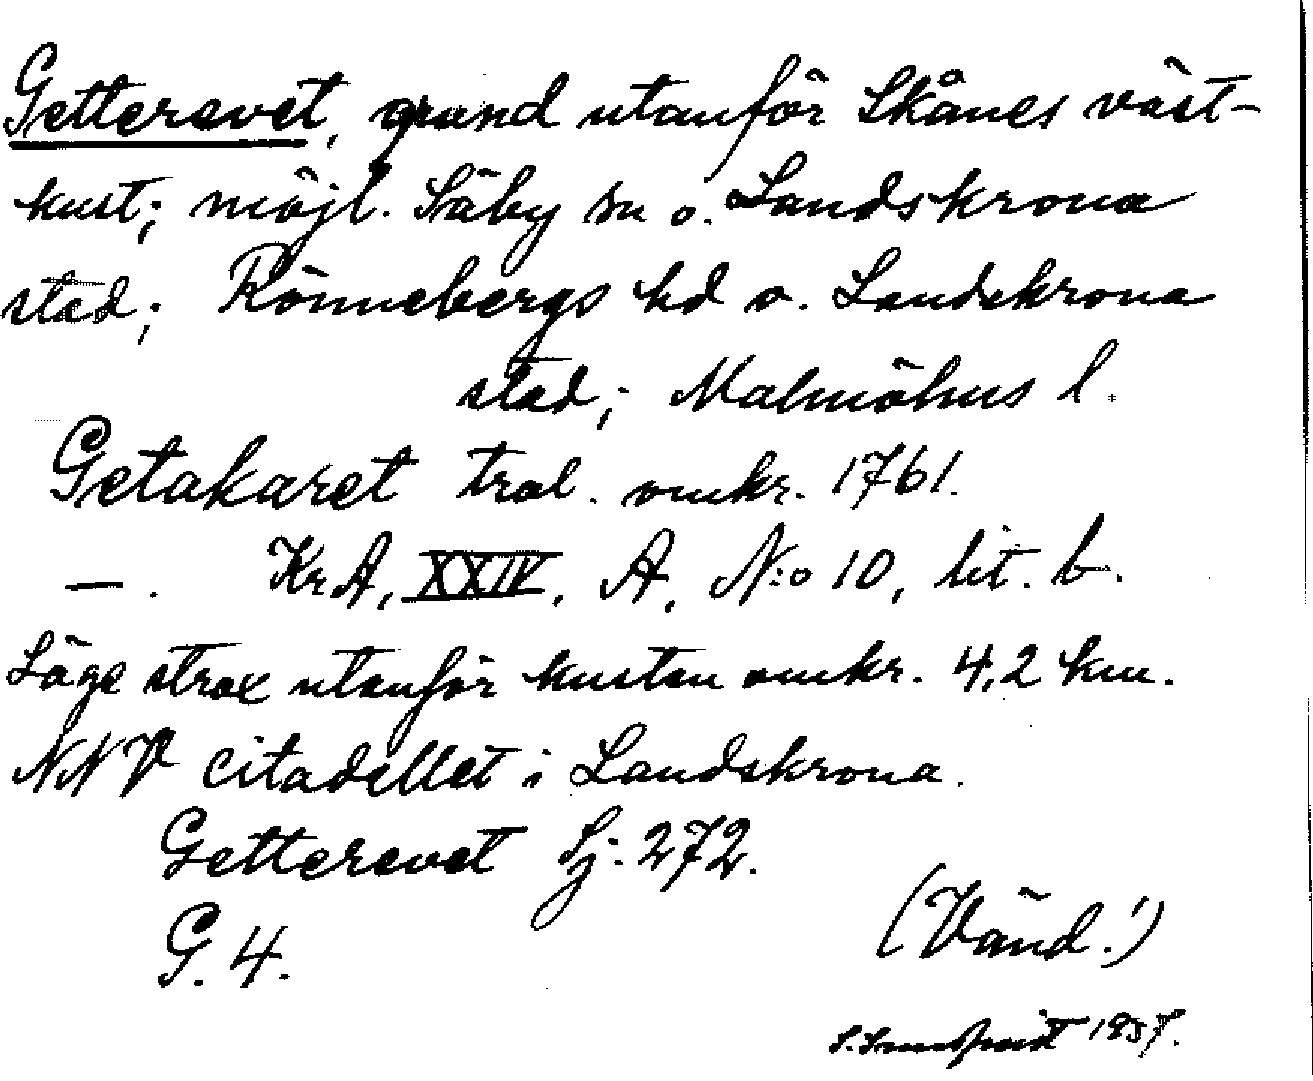 Getterevet, grund utanför Skånes väst-
kust; möjl. Säby sn o. Landskrona
stad; Rönnebergs hd o. Landskrona
stad; Malmöhus l.
Getakaret tral. omkr. 1761.
—. KrA, XXIV, A, N:o 10, lit. b.
Läge strax utanför kusten omkr. 4,2 km.
NNV citadellet i Landskrona.
Getterevet Sj. 272.
G. 4.
(Vänd!)